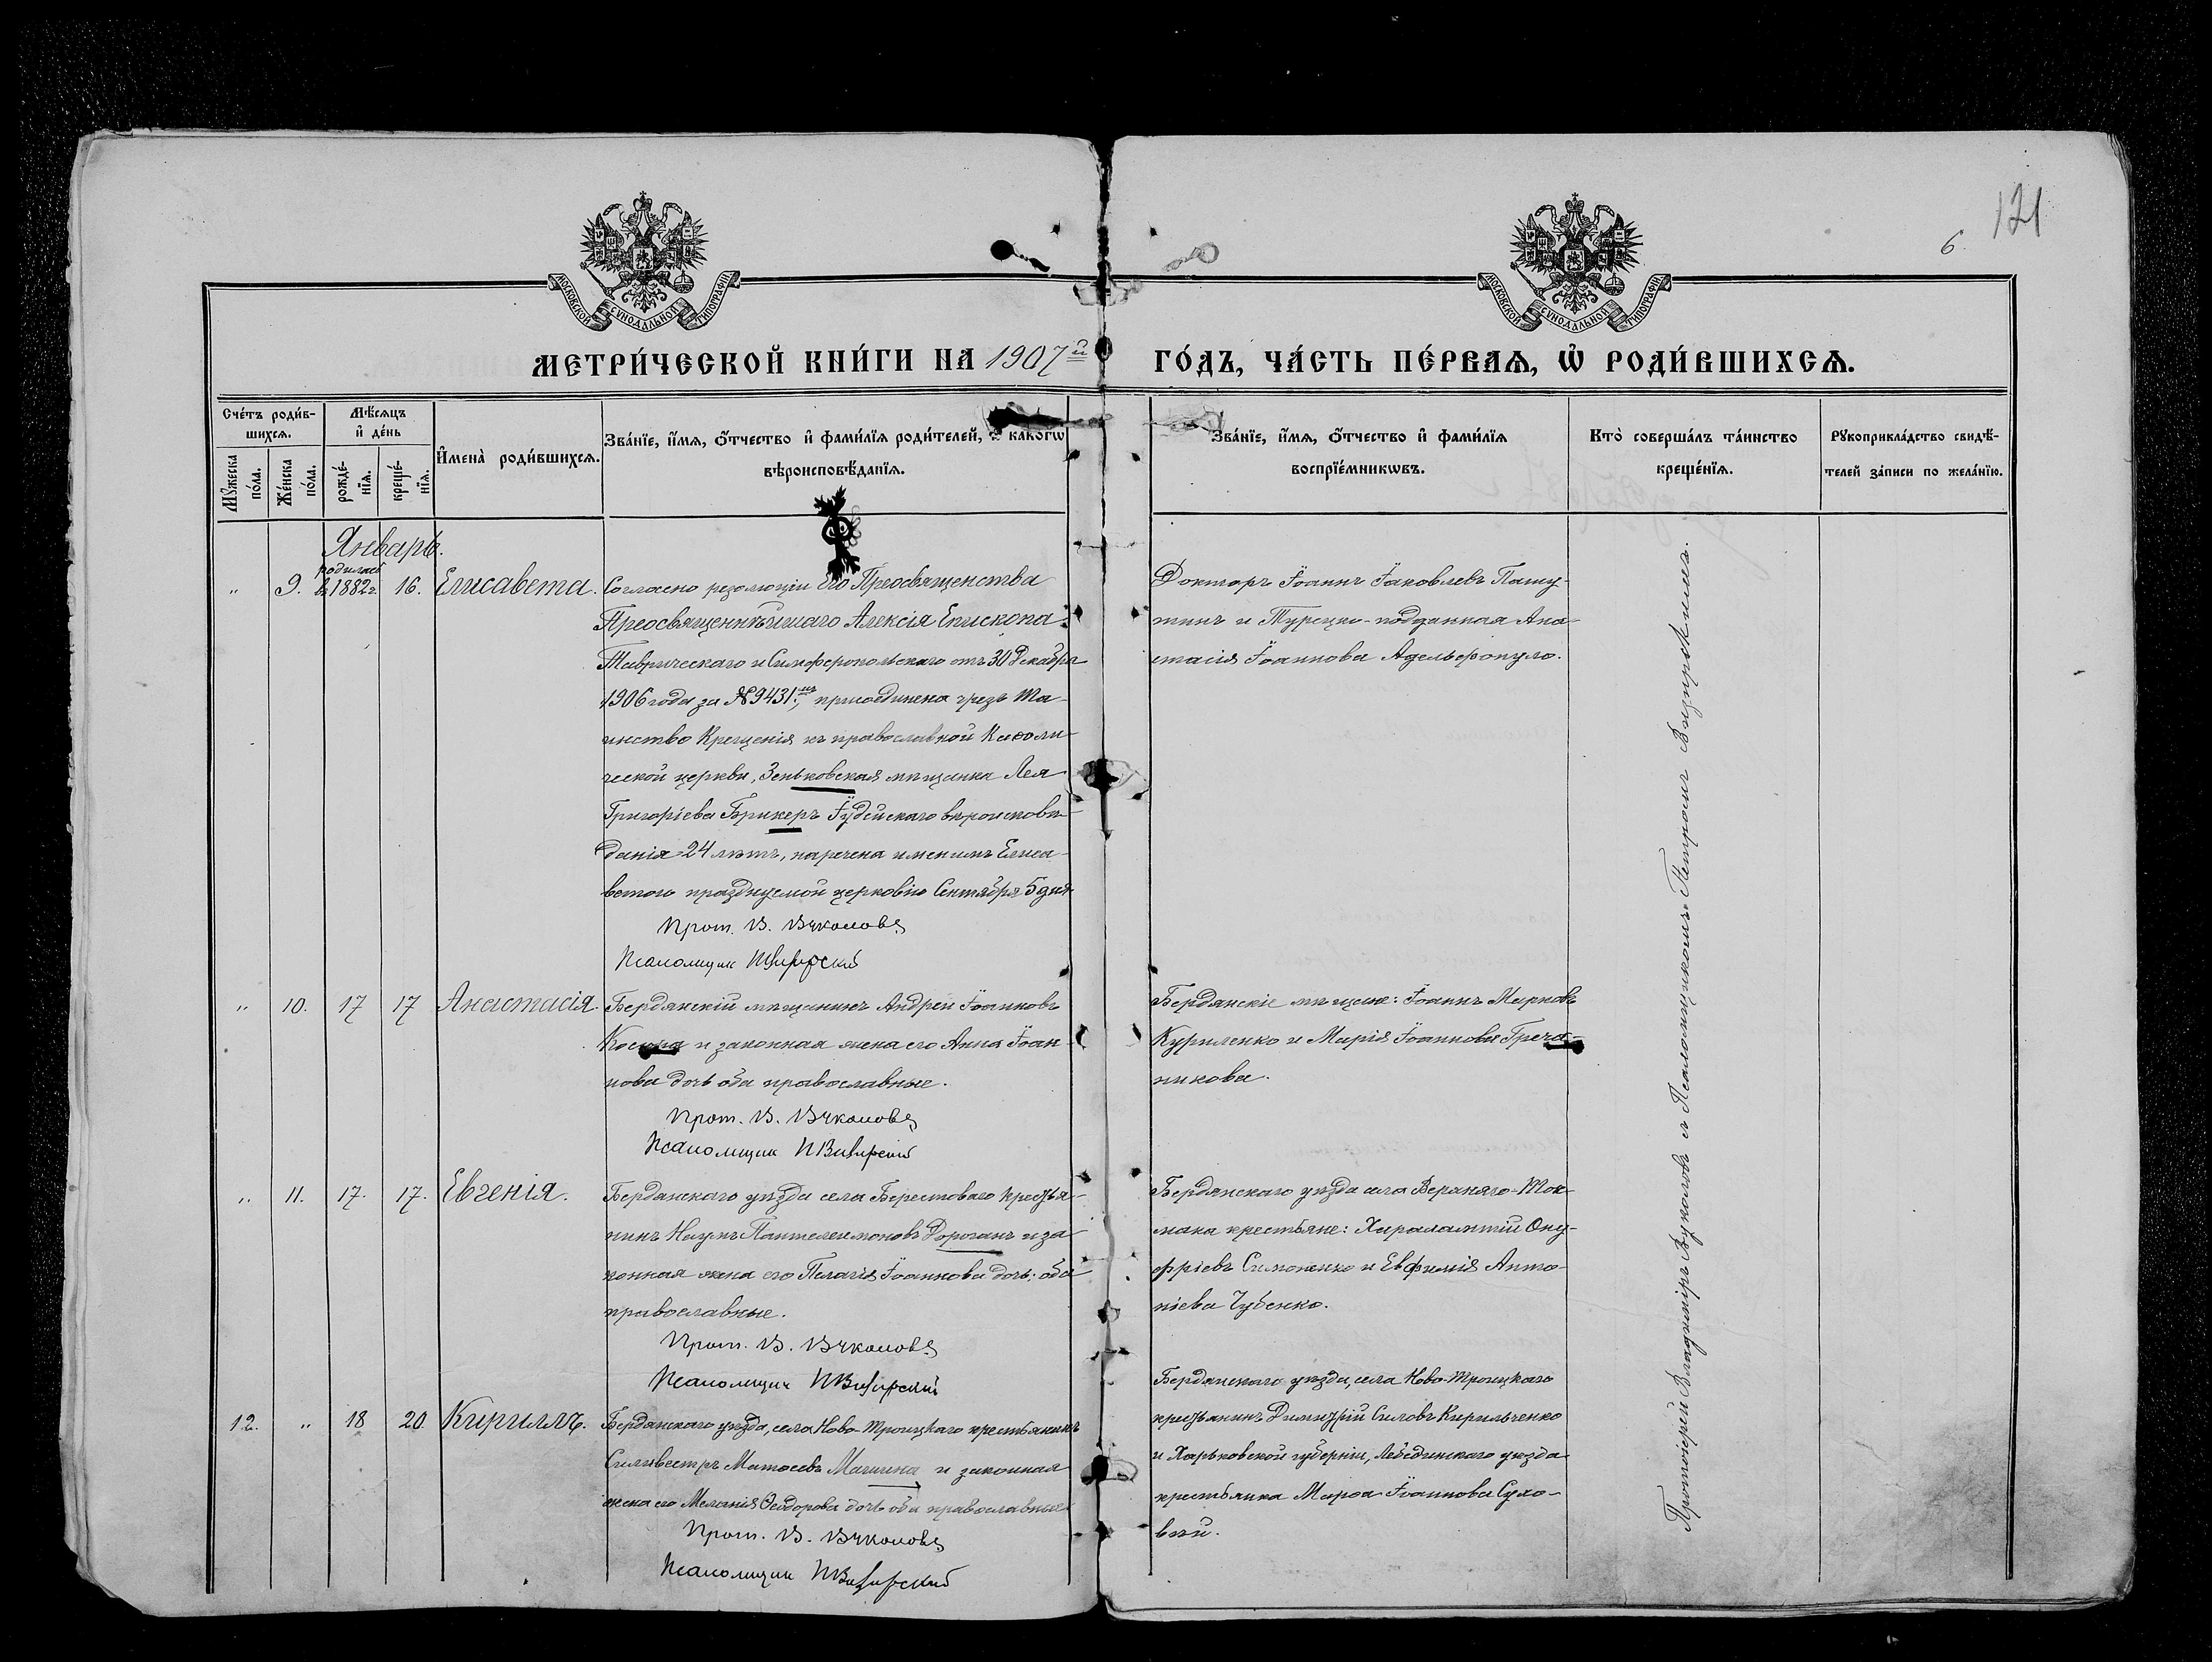 121
6.
МОСКОВСКОЙ СѴНОДАЛЬНОЙ ТИПОГРАФІИ
МОСКОВСКОЙ СѴНОДАЛЬНОЙ ТИПОГРАФІИ
МЕТРИ́ЧЕСКОЙ КНИ́ГИ НА 1907й ГО́ДЪ, ЧА́СТЬ ПЕ́РВАѦ, Ѡ҆ РОДИ́ВШИХСѦ.
Сче́тъ роди́в-
шихсѧ.
Мѣ́сѧцъ
и҆ де́нь
Мꙋ́жеска
по́ла.
Же́нска
по́ла.
рожде́-
нїѧ.
креще́-
нїѧ.
И҆мена̀ роди́вшихсѧ.
Зва́нїе, и҆́мѧ, ѻ҆́тчество и҆ фами́лїѧ роди́телей, и҆ како́гѡ
вѣроисповѣ́данїѧ.
Зва́нїе, и҆́мѧ, ѻ҆́тчество и҆ фами́лїѧ
воспрїе́мникѡвъ.
Кто̀ соверша́лъ та́инство
креще́нїѧ.
Рꙋкоприкла́дство свидѣ́-
телей за́писи по жела́нїю.
Январь.
" 9. родилась въ 1882 г. 16. Елисавета.
Согласно резолюціи Его Преосвященства
Преосвященнѣйшаго Алексія Епископа
Таврическаго и Симферопольскаго отъ 30 Декабря
1906 года за № 9431, присоединена чрезъ Та-
инство Крещенія къ православной Каѳоли-
ческой церкви, Зеньковская мѣщанка Лея
Григоріева Брикеръ Іудейскаго вѣроисповѣ-
данія 24 лѣтъ, наречена именемъ Елиса-
ветою празднуемой церковію Сентября 5 дня
Прот. В. Вуколовъ
Псаломщик Визирскій
Докторъ Іоаннъ Іаковлевъ Пашу-
тинъ и Турецко-подданная Ана-
стасія Іоаннова Адельфопуло.
" 10. 17 17 Анастасія.
Бердянскій мѣщанинъ Андрей Іоанновъ
и законная жена его Анна Іоан-
нова дочь оба православные.
Прот. В. Вуколовъ
Псаломщик П Визирскій
Бердянскіе мѣщане: Іоаннъ Марковъ
Куриленко и Марія Іоаннова Греча-
никова.
" 11. 17. 17. Евгенія.
Бердянскаго уѣзда села Берестоваго крестья-
нинъ Наумъ Пантелеимоновъ Дороганъ и за-
конная жена его Пелагія Іоаннова дочь: оба
православные.
Прот. В. Вуколовъ
Псаломщик П Визирскій
Бердянскаго уѣзда села Верхняго-Ток-
мака крестьяне: Харалампій Ону-
фріевъ Симоненко и Евфимія Анто-
ніева Чубенко.
12. " 18 20 Кириллъ.
Бердянскаго уѣзда, села Ново-Троицкаго крестьянинъ
Сильвестръ Матѳеевъ и законная
жена его Меланія Ѳеодорова дочь оба православные
Прот. В. Вуколовъ
Псаломщик П Визирскій
Бердянскаго уѣзда, села Ново-Троицкаго
крестьянинъ Димитрій Силовъ Кирильченко
и Харьковской губерніи, Лебединскаго уѣзда
крестьянка Марѳа Іоаннова Сухо-
вѣй.
Протоіерей Владиміръ Вуколовъ съ Псаломщикомъ Петромъ Визирскимъ.